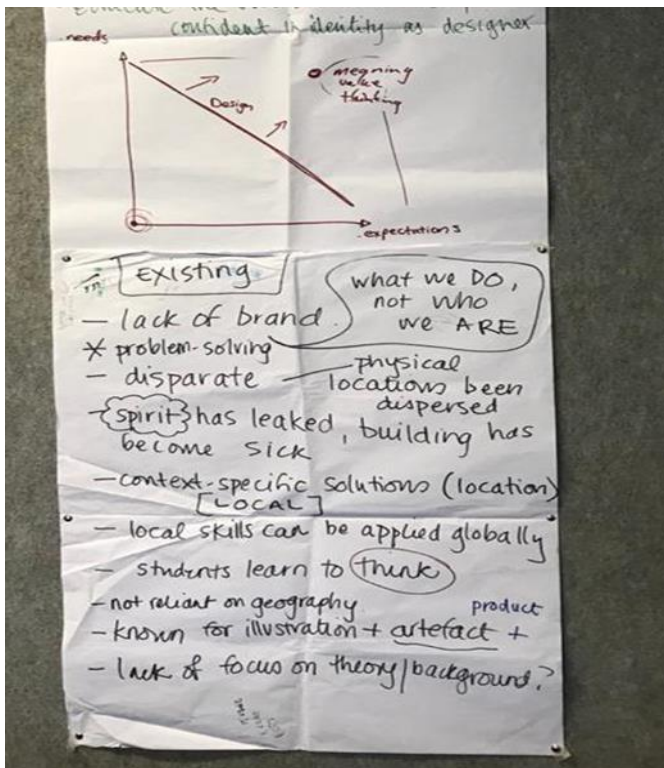 confident in identity as designer
needs
Design
meaning
value
thinking
expectations
EXISTING
what we DO,
not who
we ARE
– lack of brand
* problem-solving
– disparate – physical
locations been
dispersed
– spirit has leaked, building has
become sick
– context-specific solutions (location)
[LOCAL]
– local skills can be applied globally
– students learn to think
– not reliant on geography
product
– known for illustration + artefact +
– lack of focus on theory/background?